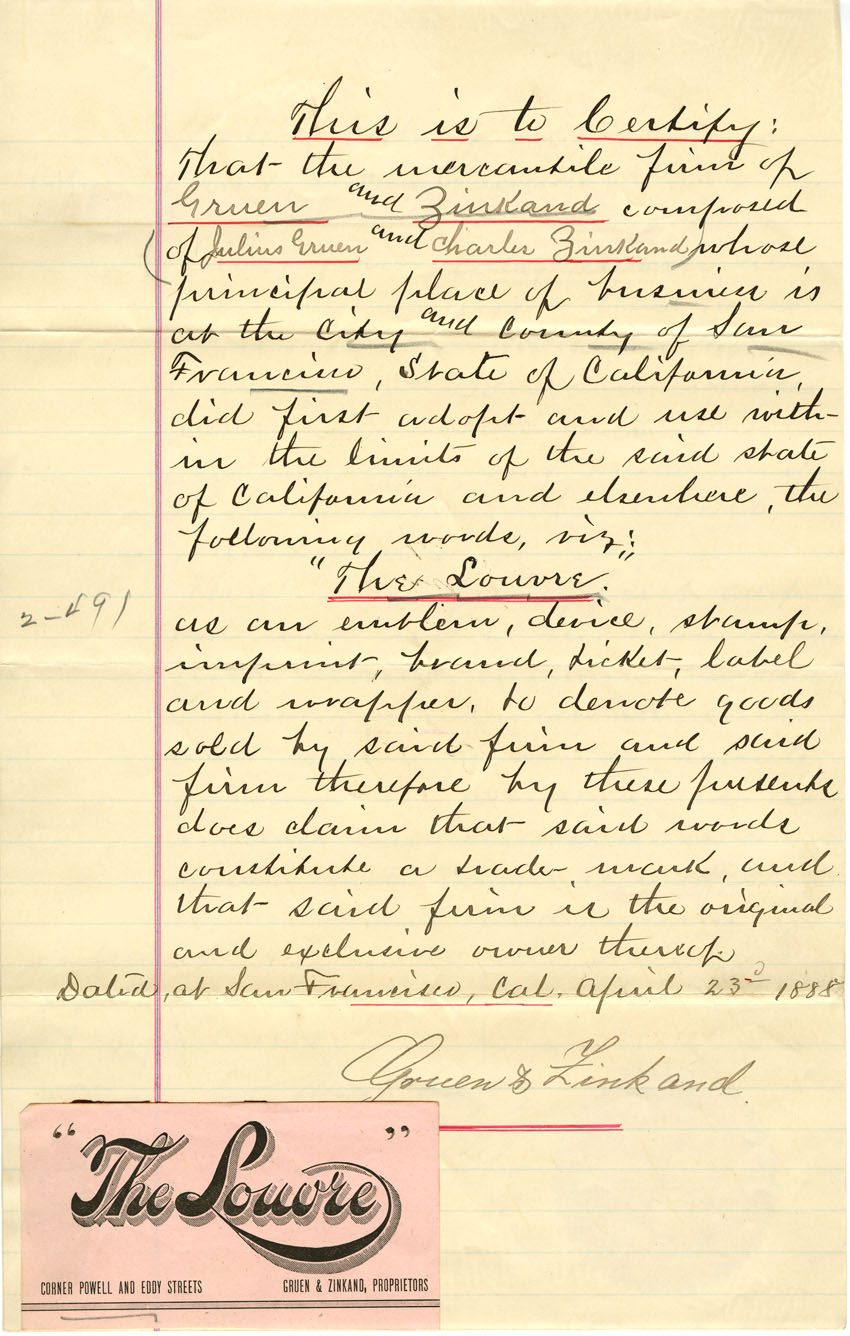 This is to Certify:
That the mercantile firm of
Gruen and Zinkand composed
(of Julius Gruen and Charles Zinkand) whose
principal place of business is
at the City and County of San
Francisco, State of California,
did first adopt and use with-
in the limits of the said state
of California and elsewhere, the
following words, viz:
"The Louvre."
2-491
as an emblem, device, stamp,
imprint, brand, ticket, label
and wrapper, to denote goods
sold by said firm and said
firm therefore by these presents
does claim that said words
constitute a trade-mark, and
that said firm is the original
and exclusive owner thereof.
Dated, at San Francisco, Cal. April 23d 1888
Gruen & Zinkand.
“The Louvre”
CORNER POWELL AND EDDY STREETS GRUEN & ZINKAND, PROPRIETORS